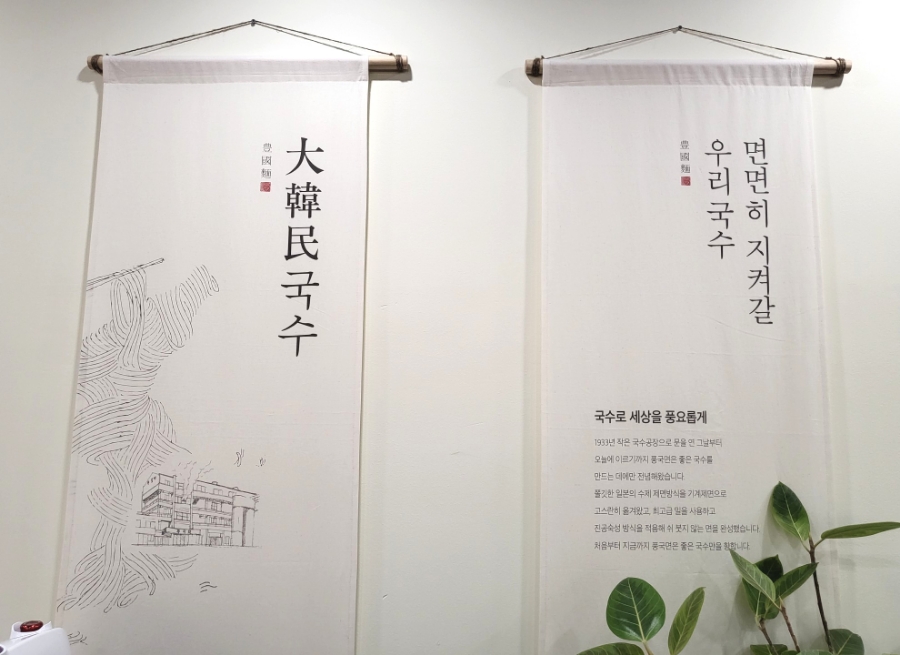 大韓民국수
豊國麵
면면히 지켜갈
우리국수
豊國麵
국수로 세상을 풍요롭게
1933년 작은 국수공장으로 문을 연 그날부터
오늘에 이르기까지 풍국면은 좋은 국수를
만드는 데에만 전념해왔습니다
쫄깃한 일본의 수제 제면방식을 기계제면으로
고스란히 옮겨왔고, 최고급 밀을 사용하고
진공숙성 방식을 적용해 쉬 붓지 않는 면을 완성했습니다.
처음부터 지금까지 풍국면은 좋은 국수만을 향합니다.